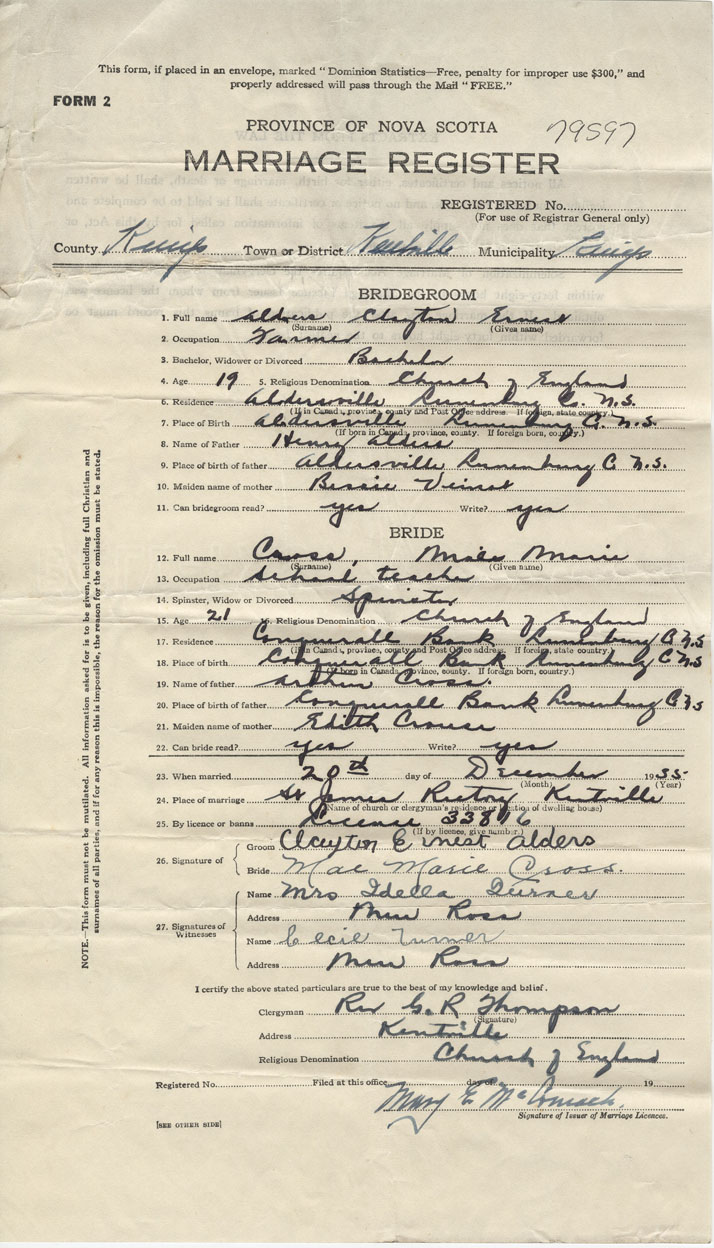 This form, if placed in an envelope, marked "Dominion Statistics—Free, penalty for improper use $300," and
properly addressed will pass through the Mail "FREE."
FORM 2
PROVINCE OF NOVA SCOTIA 79597
MARRIAGE REGISTER
REGISTERED No.
(For use of Registrar General only)
County Kings Town or District Kentville Municipality Kings
BRIDEGROOM
1. Full name Alders Clayton Ernest
(Surname) (Given name)
2. Occupation Farmer
3. Bachelor, Widower or Divorced Bachelor
4. Age 19 5. Religious Denomination Church of England
6. Residence Aldersville Lunenburg C. N.S.
(If in Canada, province, county and Post Office address. If foreign, state country.)
7. Place of Birth Aldersville Lunenburg C. N.S.
(If born in Canada, province, county. If foreign born, country.)
8. Name of Father Henry
9. Place of birth of father Aldersville Lunenburg C N.S.
10. Maiden name of mother Bessie Veinot
11. Can bridegroom read? yes Write? yes
BRIDE
12. Full name Cross, Marie
(Surname) (Given name)
13. Occupation School teacher
14. Spinster, Widow or Divorced Spinster
15. Age 21 16. Religious Denomination Church of England
17. Residence Conquerall Bank Lunenburg C N.S
(If in Canada, province, county and Post Office address. If foreign, state country.)
18. Place of birth Conquerall Bank Lunenburg C N.S
(If born in Canada, province, county. If foreign born, country.)
19. Name of father Arthur Cross.
20. Place of birth of father Conquerall Bank Lunenburg C N.S
21. Maiden name of mother Edith Crouse
22. Can bride read? yes Write? yes
23. When married 20th day of December 1935
(Month) (Year)
24. Place of marriage St James Rectory Kentville
(Name of church or clergyman's residence or location of dwelling house)
25. By licence or banns License 33816
(If by licence, give number.)
26. Signature of
Groom Clayton Ernest Alders
Bride Mae Marie Cross.
27. Signatures of Witnesses
Name Mrs Idella Turner
Address New Ross
Name Cecil Turner
Address New Ross
I certify the above stated particulars are true to the best of my knowledge and belief.
Clergyman Rev G. R Thompson
(Signature)
Address Kentville
Religious Denomination Church of England
Registered No. Filed at this office day of 19
Mary E.
Signature of Issuer of Marriage Licences.
[SEE OTHER SIDE]
NOTE.—This form must not be mutilated. All information asked for is to be given, including full Christian and
surnames of all parties, and if for any reason this is impossible, the reason for the omission must be stated.